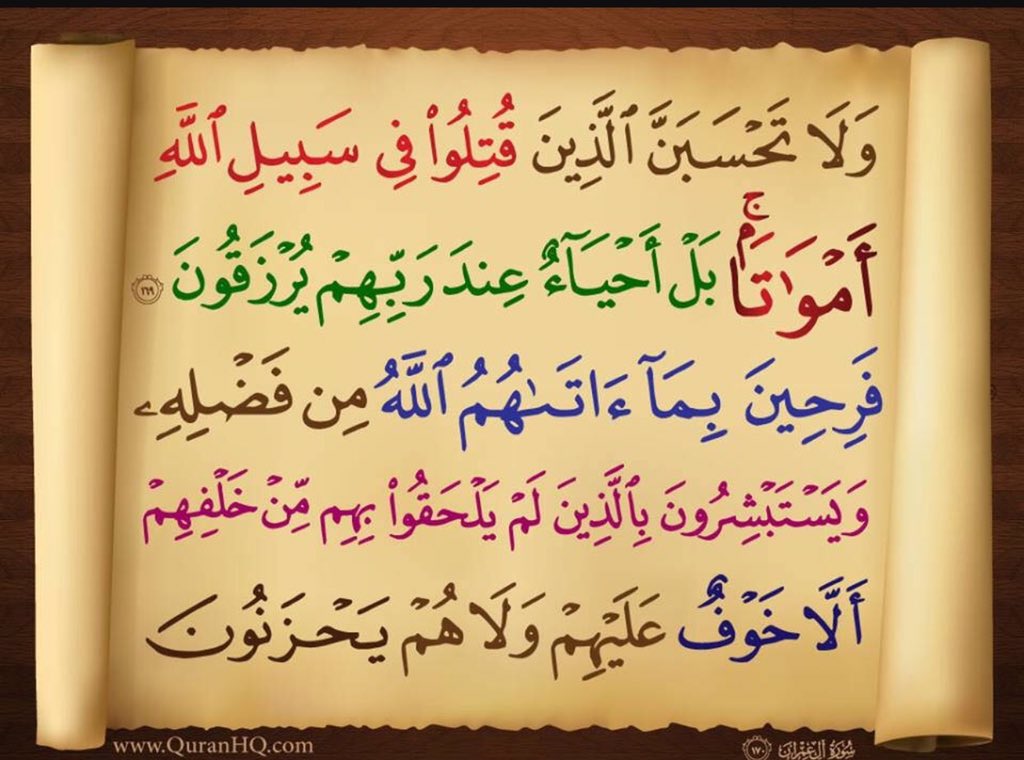 وَلَا تَحْسَبَنَّ ٱلَّذِينَ قُتِلُوا۟ فِى سَبِيلِ ٱللَّهِ
أَمْوَٰتًۢا ۚ بَلْ أَحْيَآءٌ عِندَ رَبِّهِمْ يُرْزَقُونَ ١٦٩
فَرِحِينَ بِمَآ ءَاتَىٰهُمُ ٱللَّهُ مِن فَضْلِهِۦ
وَيَسْتَبْشِرُونَ بِٱلَّذِينَ لَمْ يَلْحَقُوا۟ بِهِم مِّنْ خَلْفِهِمْ
أَلَّا خَوْفٌ عَلَيْهِمْ وَلَا هُمْ يَحْزَنُونَ
www.QuranHQ.com
سُورَةُ آلِ عِمْرَان ١٧٠